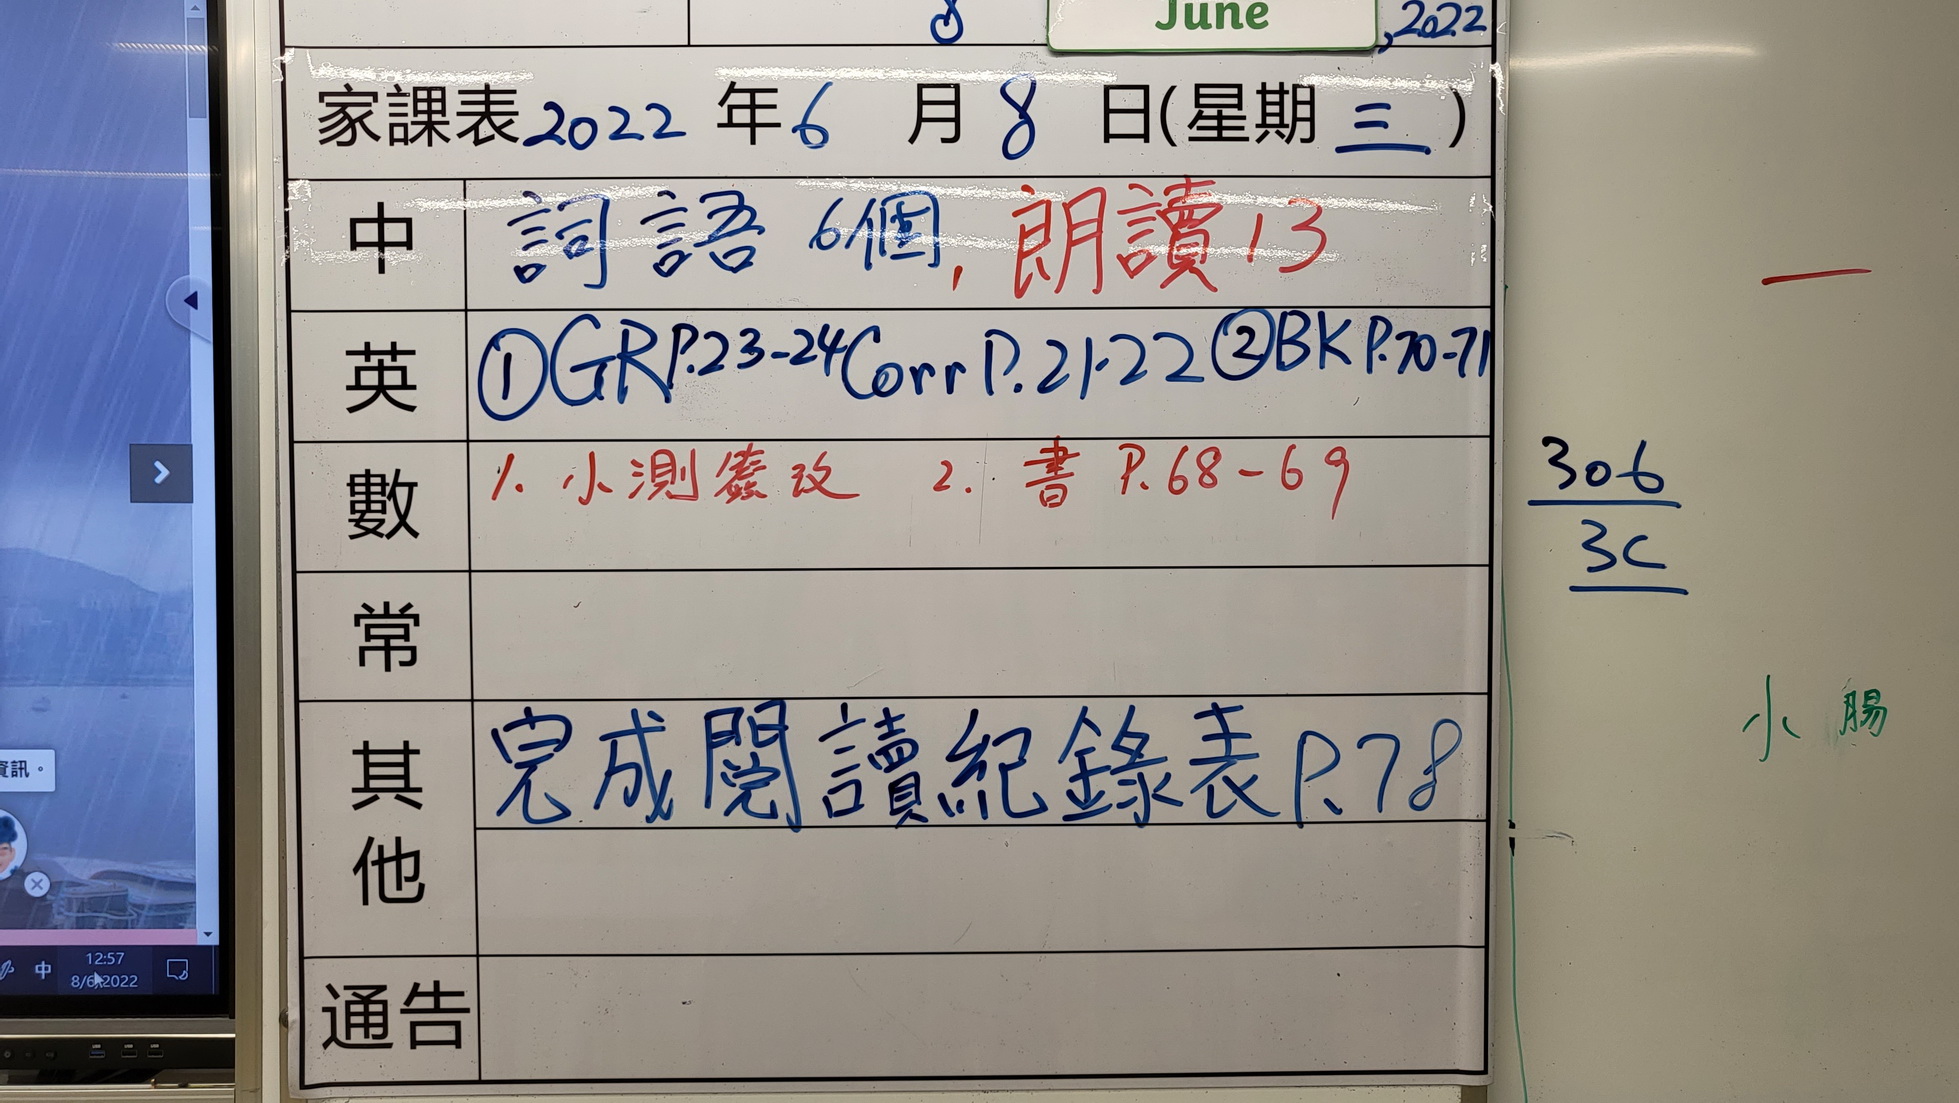 8 June, 2022
家課表 2022 年 6 月 8 日(星期 三 )
中 詞語 6個, 朗讀 13
英 ①GR P.23-24 Corr P.21-22 ②BK P.70-71
數 1. 小測簽改 2. 書 P.68-69
常
其他 完成閱讀紀錄表 P.78
通告
306
3C
小腸
資訊。
中 12:57
8/6/2022